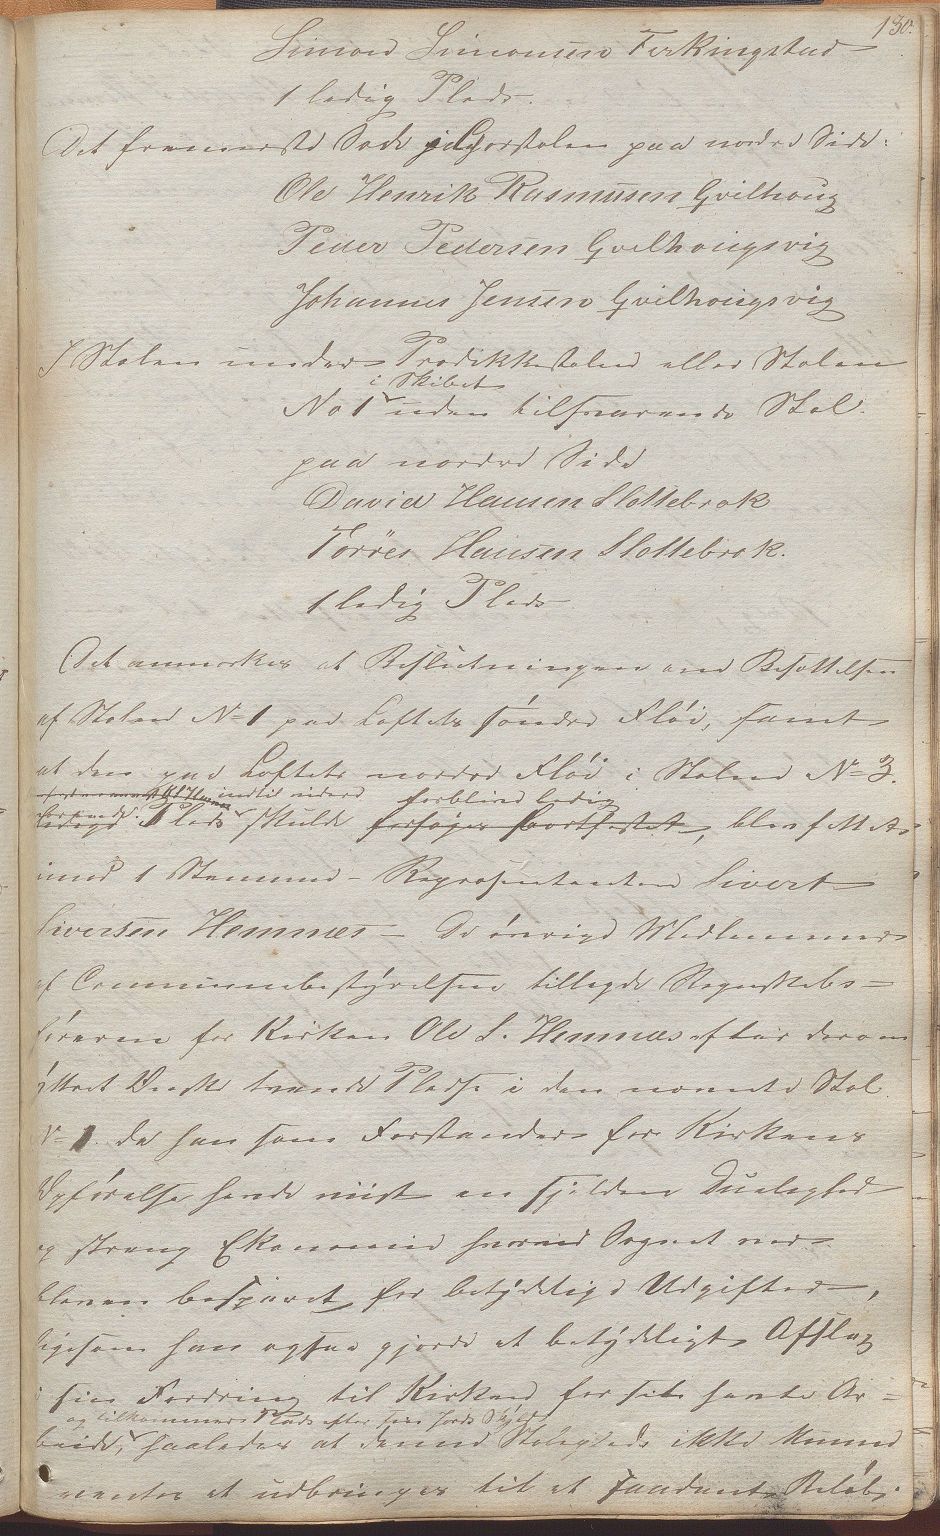 130.
Simon Simonsen Ferkingstad
1 ledig Plads.
Det fremmerste Sæde i Chorstolen paa nordre Side:
Ole Henrik Rasmussen Hvilhoug
Peder Pedersen Hvilhougsvig
Johannes Jensen Hvilhougsvig
I Stolen under Prædikkestolen eller Stolen
i Skibet
No 1 uden tilsvarende Stol
paa nordre Side
David Hansen Slottebrok
Tørres Hansen Slottebrok.
1 ledig Plads
Det anmærkes at Beslutningen om Besættelsen
af Stolen No 1 paa Loftets søndre Fløi, samt
at den paa Loftets nordre Fløi i Stolen No 3.
indtil videre forblive ledig
Plads skulde forsøges bortfæstet, blev fattet
imod 1 Stemme - Repræsentanten Sivert
Siversen Hemnes - De øvrige Medlemmer
af Communebestyrelsen tillagde Regnskabs-
føreren for Kirken Ole S. Hemnes efter derom
yttret Ønske tvende Pladse i den nævnte Stol
No 1 da han som Forstander for Kirkens
Opførelse havde viist en sjelden Duelighed
og streng Ekonomie hvorved Sognet var
bleven besparet for betydelige Udgifter,
ligesom han ogsaa gjorde et betydeligt Afslag
i sin Fordring til Kirken for sit havte Ar-
og tilkommer Plads efter sin Jords Skyld
beide, saaledes at denne Stoleplads ikke kunne
ventes at udbringes til et saadant Beløb.